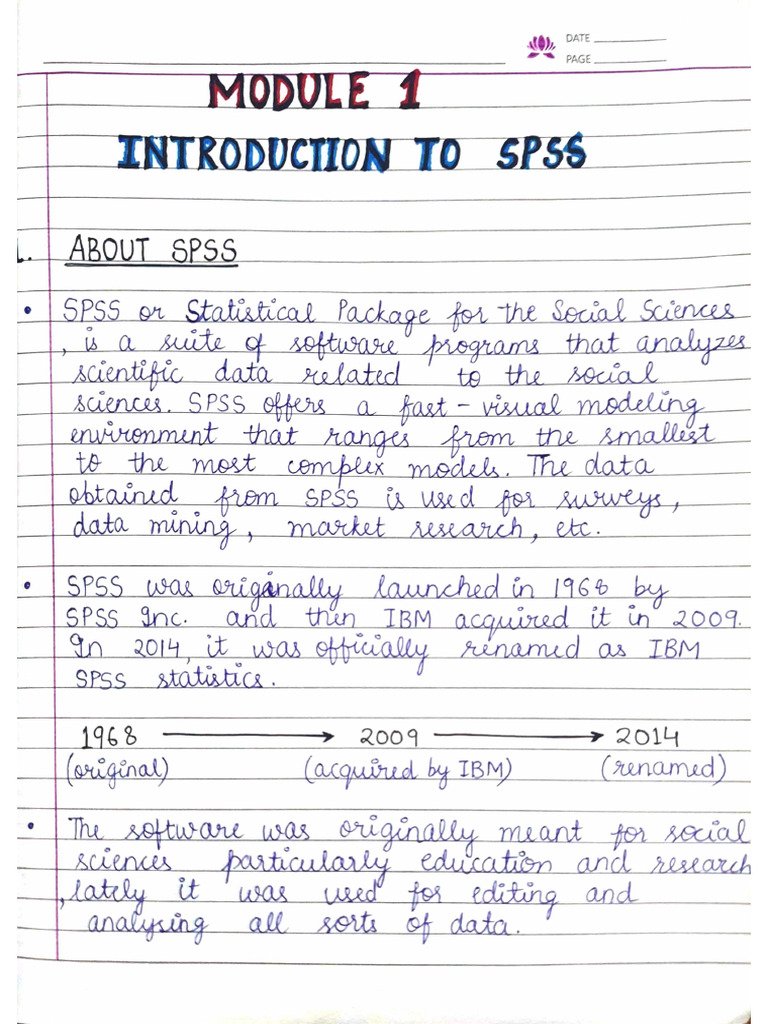 DATE
PAGE
MODULE 1
INTRODUCTION TO SPSS
1. ABOUT SPSS
• SPSS or Statistical Package for the Social Sciences
, is a suite of software programs that analyzes
scientific data related to the social
sciences. SPSS offers a fast-visual modeling
environment that ranges from the smallest
to the most complex models. The data
obtained from SPSS is used for surveys,
data mining, market research, etc.
• SPSS was originally launched in 1968 by
SPSS Inc. and then IBM acquired it in 2009.
In 2014, it was officially renamed as IBM
SPSS statistics.
1968 → 2009 → 2014
(original) (acquired by IBM) (renamed)
• The software was originally meant for social
sciences particularly education and research
, lately it was used for editing and
analysing all sorts of data.